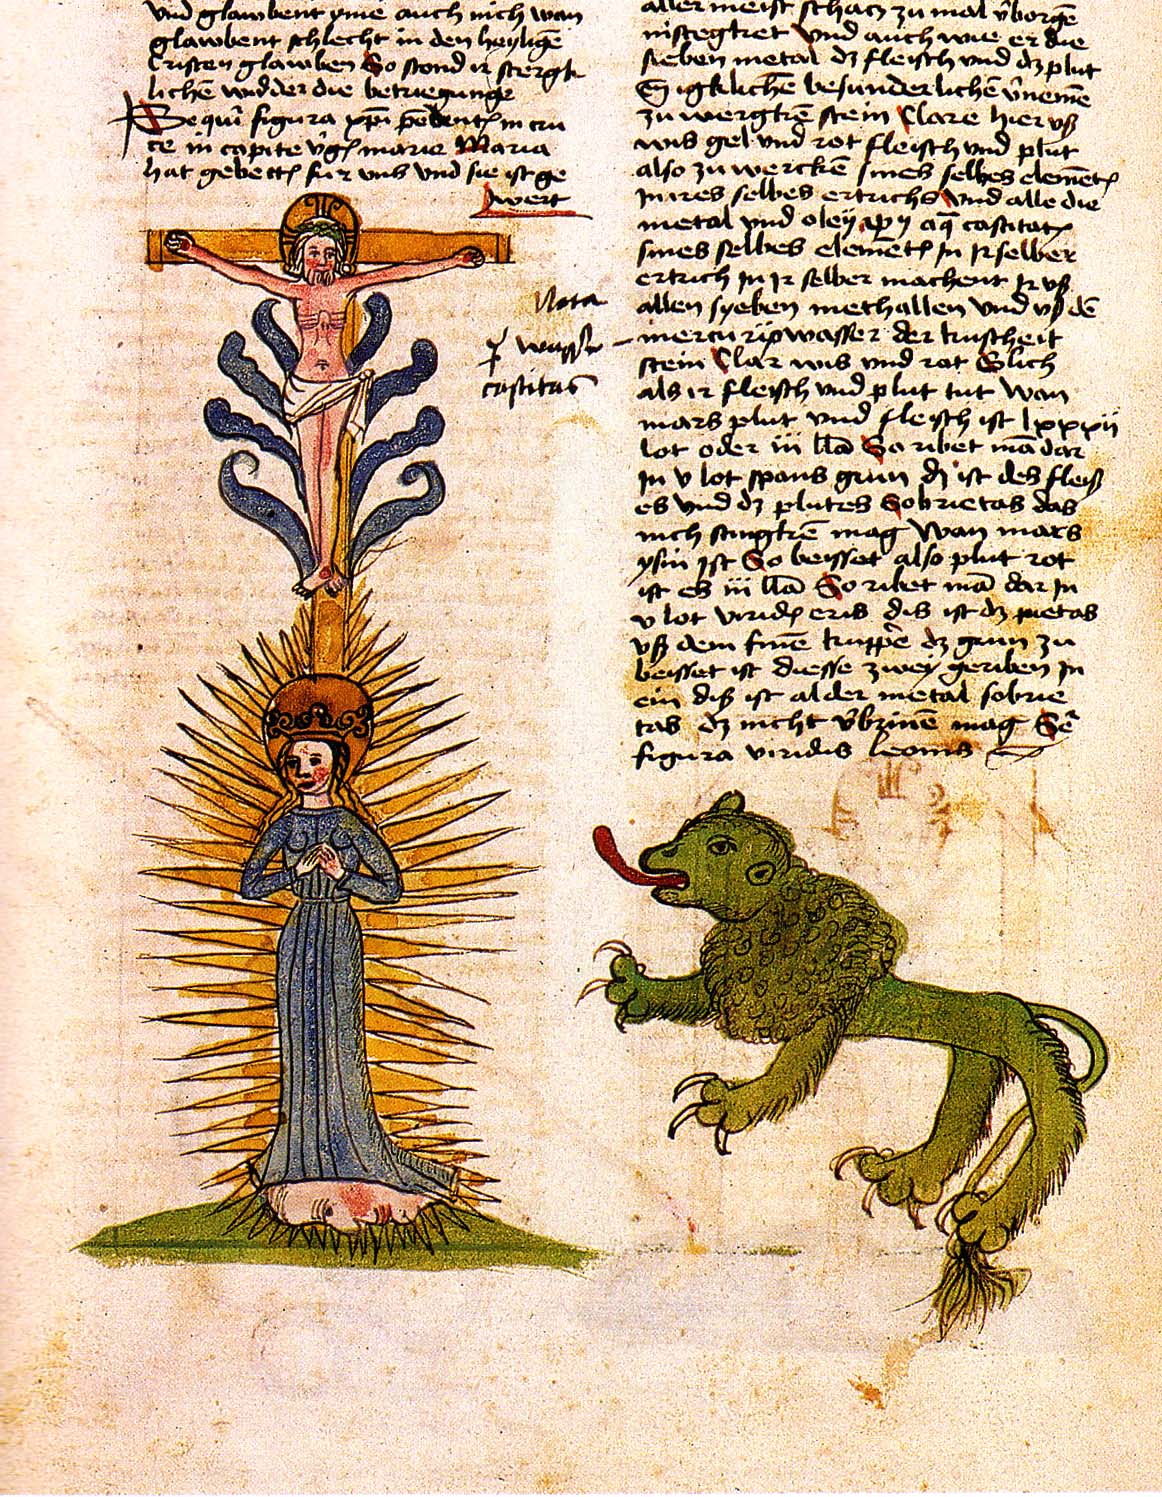 vnd glawbent yme auch nich wan
glawbent schlecht in den heyligē
Cristen glawben So stond ir stergk
lichē widder die betriegunge
Sequit̄ figura xp̄i in cru
ce in capite v̄g marie Maria
hat gebett fur vnß vnd sie ist ge
wert
Nota
wasser
castitas
aller meist schacz zu mal v̄borgē
vnd auch wie er die
sieben metal dz fleisch vnd dz plut
besunderlichē v̄nemē
zu wergkē stein Clare hier vß
wiß gel vnd rot fleisch vnd plut
also zu werckē sines selbes element
in ires selbes ertrichs vnd alle die
metal vnd oley aq̄ castitat
sines selbes element in ir selber
ertrich in ir selber machent ir vß
allen syeben methallen vnd vß dē
mercurig wasser der kuscheit
stein Clar wiß vnd rot Glich
als ir fleisch vnd plut tut wan
mars plut vnd fleisch ist lxxxii
lot oder iii So ribet mā dar
in v lot spans grun dz ist deß fleiß
es vnd dz plutes Sobrietas das
nich mag Wan mars
ysin ist So beisset also plut rot
ist eß iii So ribet mā dar in
v lot virid eris diß ist dz pietas
vß dem finē kupp̄e dz grun zu
beisset ist diesse zwey geriben in
ein diß ist al der metal sobrie
tas dz nicht v̄brinē mag
figura viridis leonis